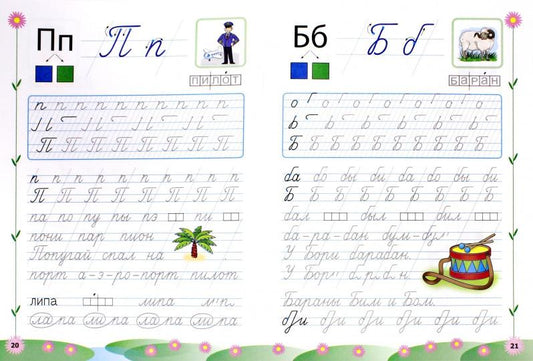 Пп П п
ПИЛОТ
п п п п п п п п п п
П П П П П П П П
п п п п п п п п п п п
П П П П П П П П П
па по пу пы пэ пи
пони пар пион
Попугай спал на
порт а-э-ро-порт пилот
липа липа л п
ла па ли па ла па ли па
20
Бб Б б
БАРАН
Б Б Б Б Б Б Б Б
ба бо бы би ба бо бы би
Б Б Б Б Б Б Б Б Б
бал был был
ба-ра-бан бум-бум
У Бори барабан.
У Бори б.р.б.н.
Бараны Бим и Бом.
21